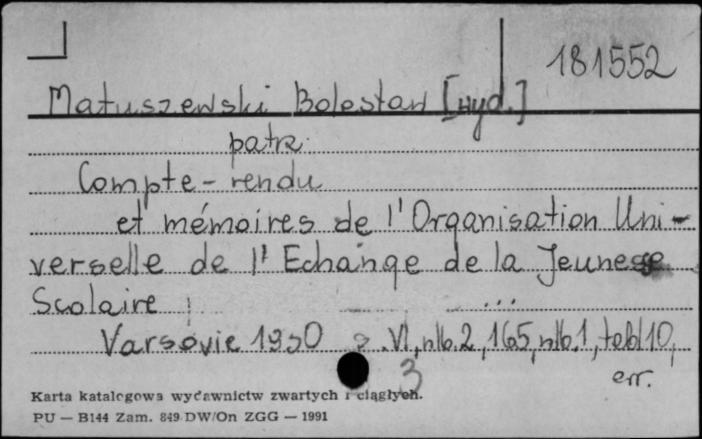 181552
Matuszewski Bolesław [wyd.]
patrz
Compte-rendu
et mémoires de l'Organisation Uni-
verselle de l'Echange de la Jeunesse
Scolaire ...
Varsovie 1930 s. VI, nlb. 2, 165, nlb. 1, tabl 10,
3 err.
Karta katalogowa wydawnictw zwartych i ciągłych.
PU — B144 Zam. 849 DW/On ZGG — 1991